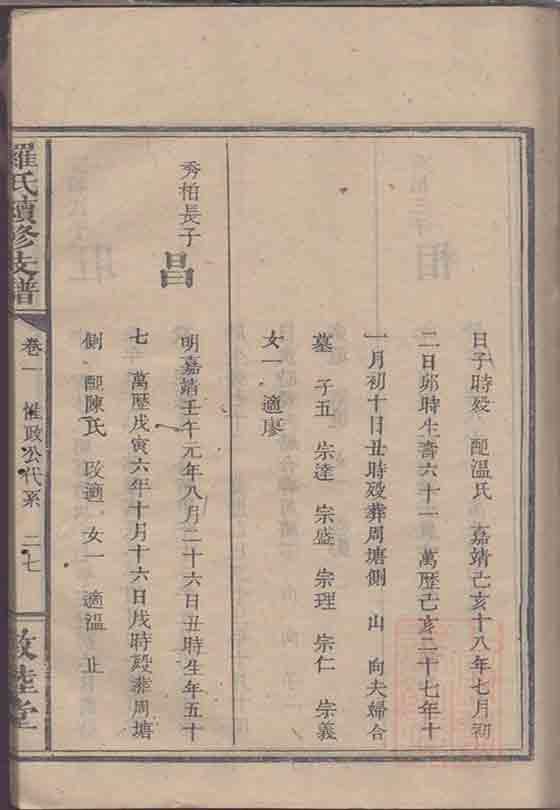 日子時殁 配溫氏 嘉靖己亥十八年七月初
二日卯時生壽六十一 萬歷己亥二十七年十
一月初十日丑時殁葬周塘側 山 向夫婦合
墓 子五 宗達 宗盛 宗理 宗仁 宗義
女一 適廖
秀柏長子
昌
明嘉靖壬午元年八月二十六日丑時生年五十
七 萬歷戊寅六年十月十六日戌時殁葬周塘
側 配陳氏 改適 女一 適溫 止
羅氏續修支譜
卷一 惟政公代系 二七
敦睦堂